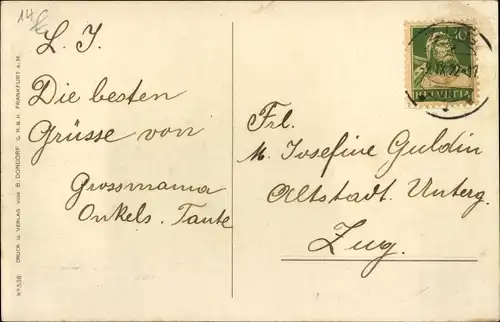 14
L. J.
Die besten
Grüsse von
Grossmama
Onkels. Tante
Frl.
M. Josefine Guldin
Altstadt. Unterg.
Zug.
10
HELVETIA
Nº 538 DRUCK U. VERLAG VON B. DONDORF, G.M.B.H. FRANKFURT A.M.